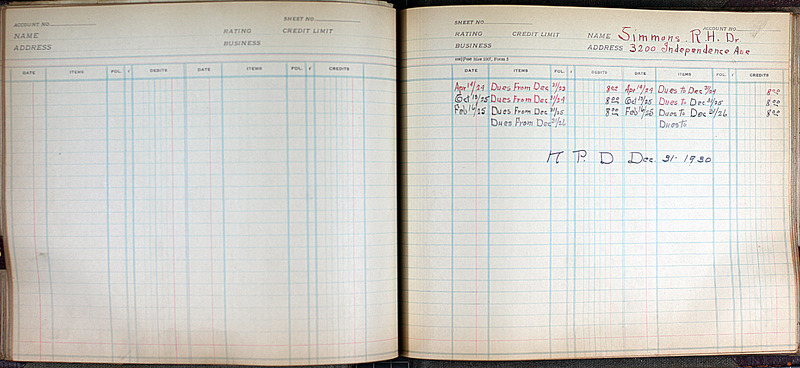 ACCOUNT NO.
SHEET NO.
NAME RATING CREDIT LIMIT
ADDRESS BUSINESS
DATE ITEMS FOL. √ DEBITS DATE ITEMS FOL. √ CREDITS
SHEET NO.
ACCOUNT NO.
RATING CREDIT LIMIT NAME Simmons, R.H. Dr.
BUSINESS ADDRESS 3200 Independence Ave
DATE ITEMS FOL. √ DEBITS DATE ITEMS FOL. √ CREDITS
Dues From Dec 31/23 8 00 Dues To Dec 8 00
Dues From Dec 31/24 8 00 Dues To Dec 31/25 8 00
Dues From Dec 31/25 8 00 Dues To Dec 31/26 8 00
Dues From Dec 31/26 Dues to
P. D Dec. 31- 1930